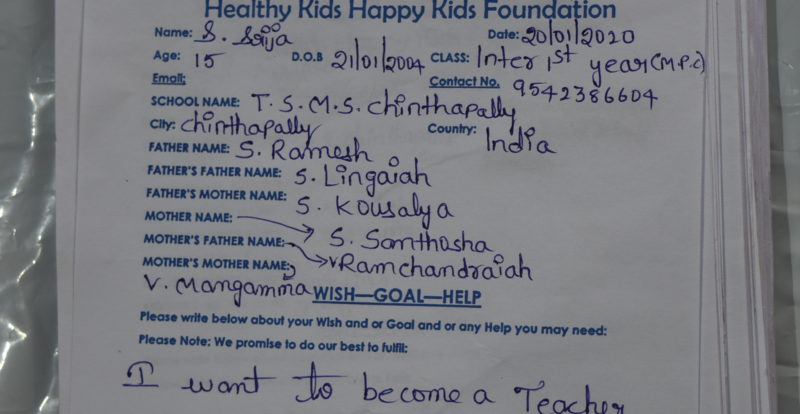 Healthy Kids Happy Kids Foundation
Name: S. Srija Date: 20/01/2020
Age: 15 D.O.B 21/01/2004 CLASS: Inter 1st year (M.P.C)
Email: Contact No. 9542386604
SCHOOL NAME: T.S.M.S. Chinthapally
City: Chinthapally Country: India
FATHER NAME: S. Ramesh
FATHER'S FATHER NAME: S. Lingaiah
FATHER'S MOTHER NAME: S. Kousalya
MOTHER NAME: S. Santhosha
MOTHER'S FATHER NAME: V Ramchandraiah
MOTHER'S MOTHER NAME:
V. Mangamma WISH—GOAL—HELP
Please write below about your Wish and or Goal and or any Help you may need:
Please Note: We promise to do our best to fulfil:
I want to become a Teacher